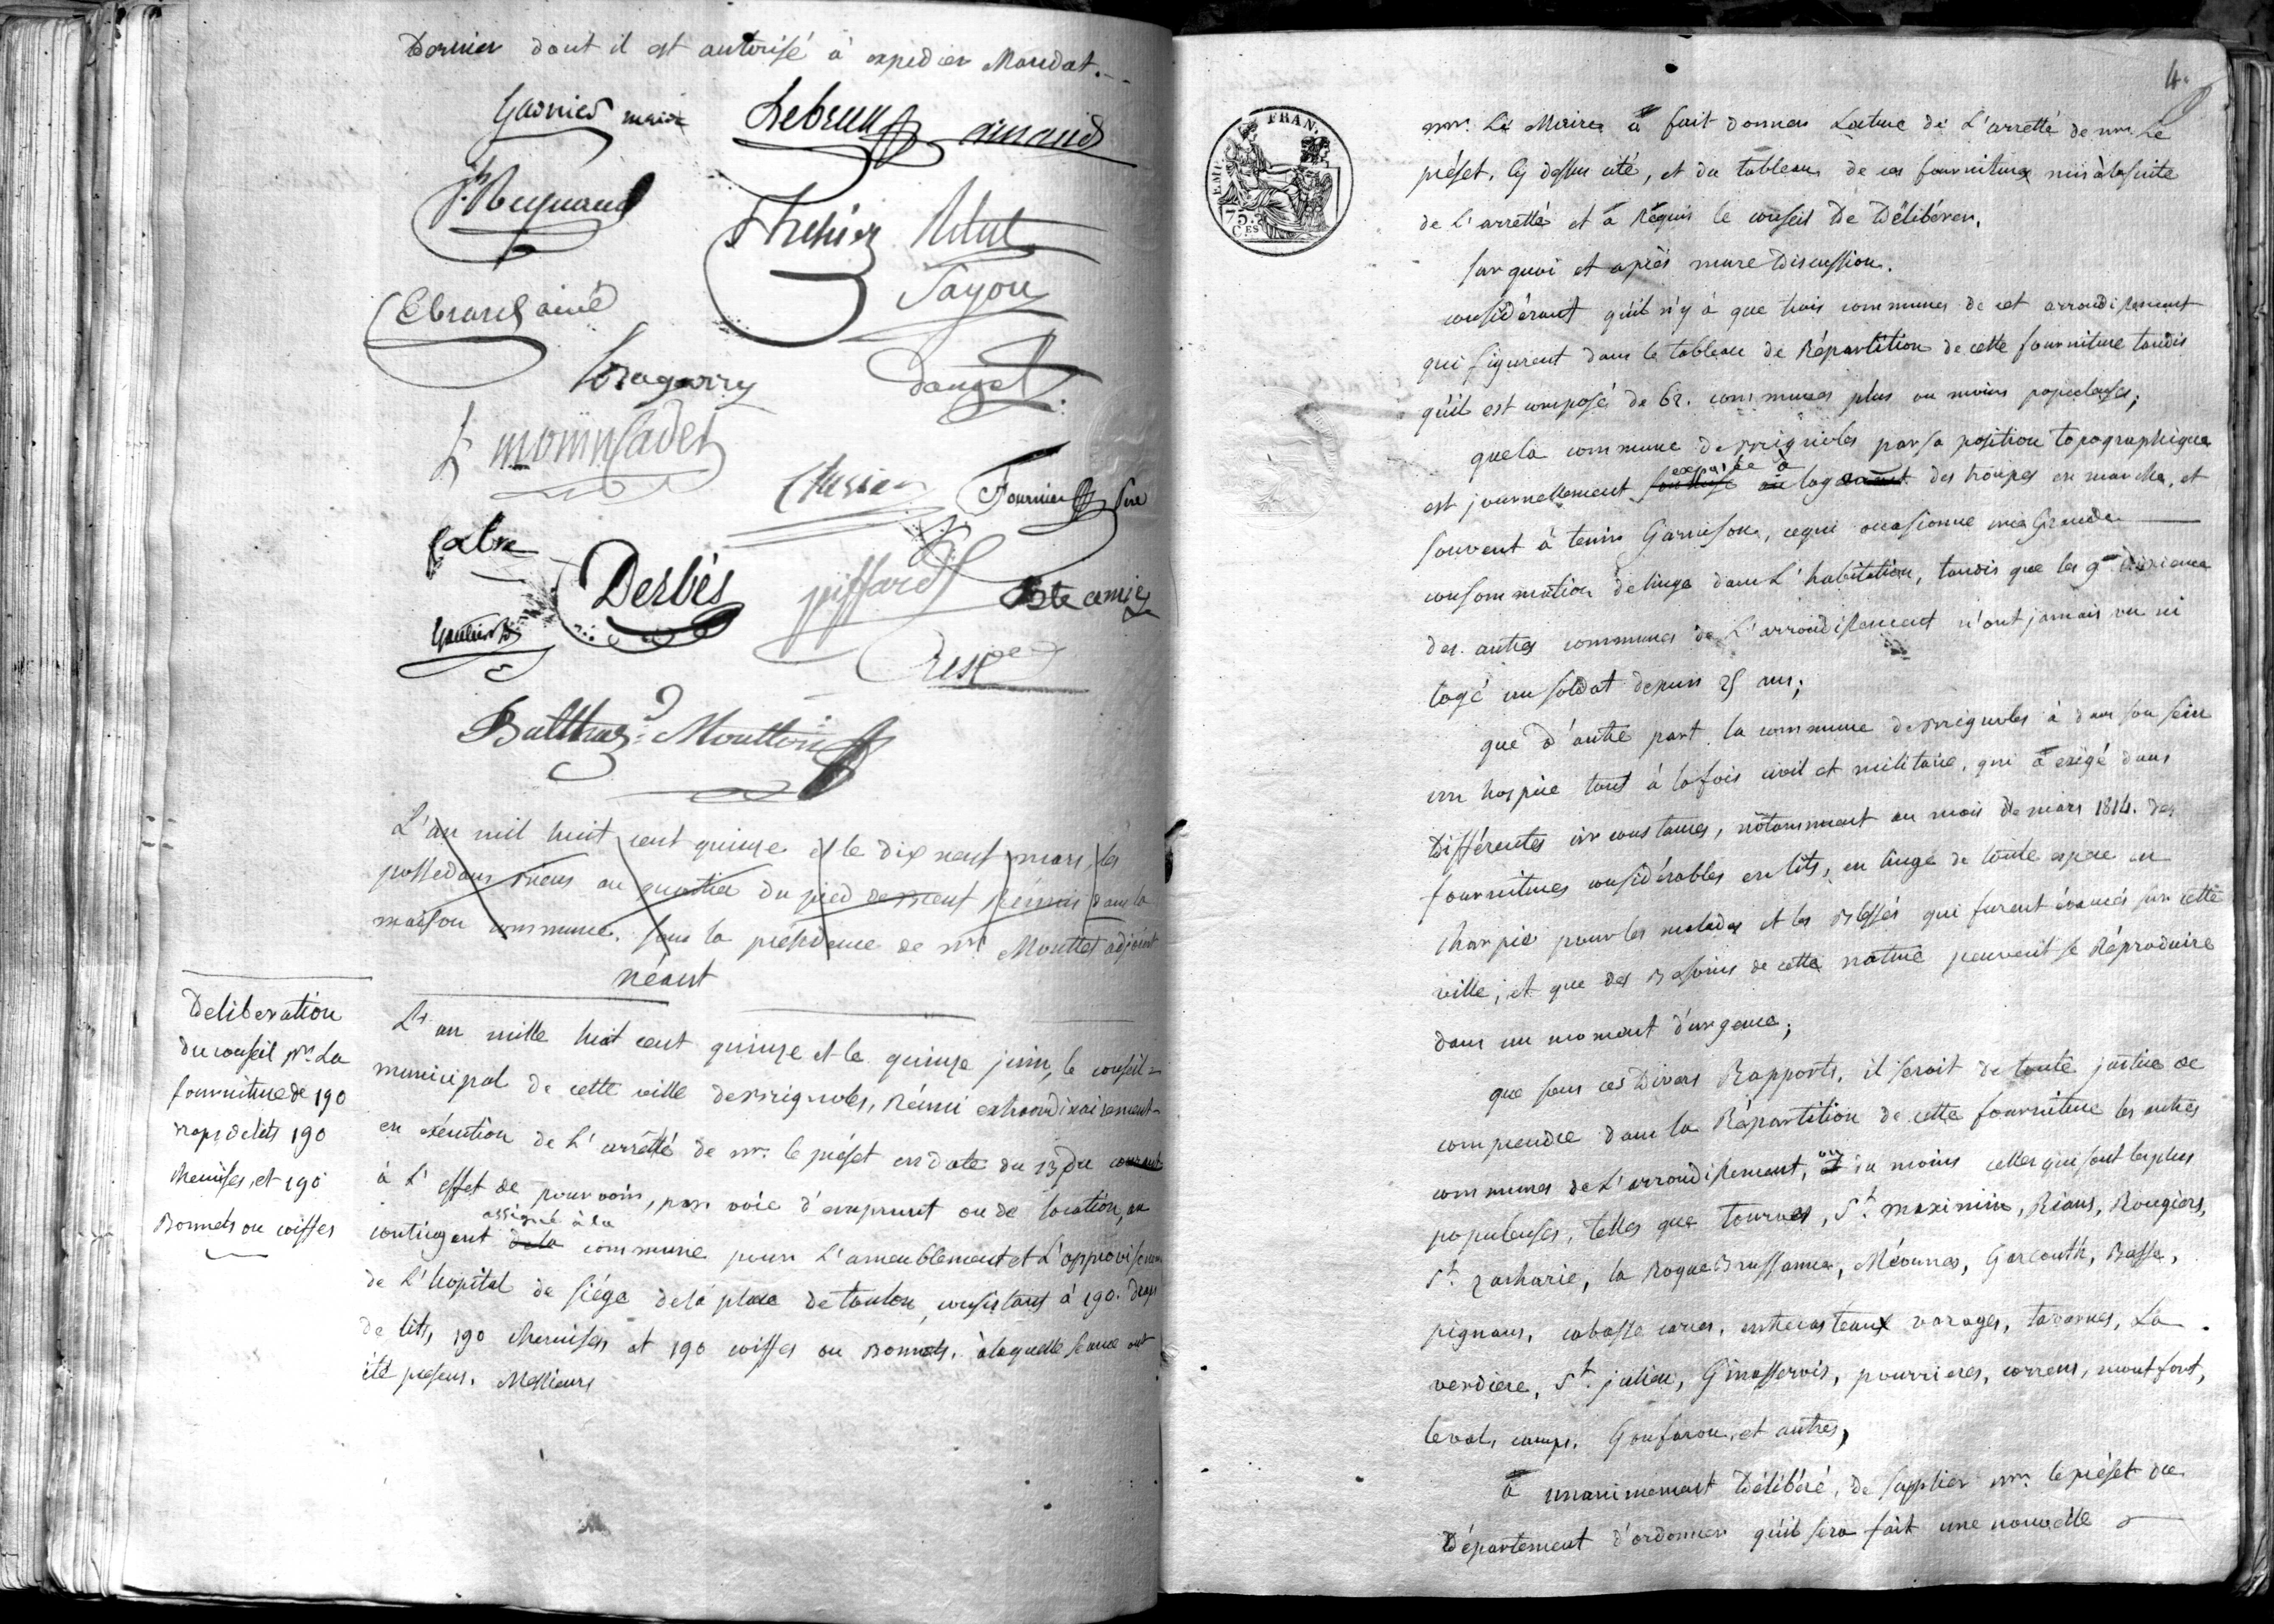 Dernier dont il est autorisé à expedier Mandat.
Garnier maire Lebrun
Thehier
Ebrard ainé Fayou
Bragarry
Fournier
fabre
Derbés piffard
Balthaz.d Moutton
L'an mil huit cent quinze et le dix neuf mars, les
possedans biens au quartier du pied de Réunis dans la
maison commune. sous la présidence de mr. Mouttet adjoint
néant
Deliberation
du conseil pr. La
fourniture de 190
Draps de lits 190
chemises, et 190
Bonnets ou coiffes
L'an mille huit cent quinze et le quinze juin, le conseil
municipal de cette ville de Brignoles, Réuni extraordinairement
en exécution de L'arrêtté de mr. le préfet en date du 13 du courant
à L'effet de pourvoir, par voie d'emprunt ou de location, au
contingent dela assigné à la commune pour L'ameublement et L'approvisionnemt
de L'hopital de siége de la place de toulon, consistans à 190. draps
de lits, 190 chemises et 190 coiffes ou Bonnets. à laquelle séance ont
été presens. Messieurs
4.
FRAN.
75.
C.ES
mr. Le Maire a fait donner Lecture de L'arretté de mr. Le
préfet, cy dessus cité, et du tableau de ces fournitures mis à la suite
de L'arretté et a Réquis le conseil De Délibérer.
sur quoi et après mure Discussion.
considérant qu'il n'y à que trois communes de cet arrondissement
qui figurent dans le tableau de Répartition de cette fourniture tandis
qu'il est composé de 62. communes plus ou moins populeuses;
que la commune de Brignoles par sa position topographique
est journellement exposée à loger des troupes en marche, et
souvent à tenir Garnison, ce qui occasionne une Grande
consommation de linge dans L'habitation, tandis que les
des autres communes de L'arrondissement n'ont jamais vu ni
logé un soldat depuis 25 ans;
que d'autre part la commune de Brignoles à dans son sein
un hospice tout à la fois civil et militaire, qui a exigé dans
Différentes circonstances, notamment au mois de mars 1814. des
fournitures considérables en lits, en linge de toute espece en
charpie pour les malades et les Blessés qui furent évacués sur cette
ville; et que des Besoins de cette nature peuvent se Réproduire
dans un moment d'urgence;
que sous ces Divers Rapports, il seroit de toute justice de
comprendre dans la Répartition de cette fourniture les autres
communes de L'arrondissement, ou du moins celles qui sont les plus
populeuses, telles que tourves, St. maximin, Rians, Rougiers,
St. zacharie, la Roque Brussanne, Méounes, Garéoult, Besse,
pignans, cabasse carces, entrecasteaux varages, tavernes, La
verdiere, St. julien, Ginasservis, pourrieres, correns, montfort,
leval, camps. Gonfaron, et autres,
a unanimement Délibéré, de supplier mr. le préfet du
Département d'ordonner qu'il sera fait une nouvelle